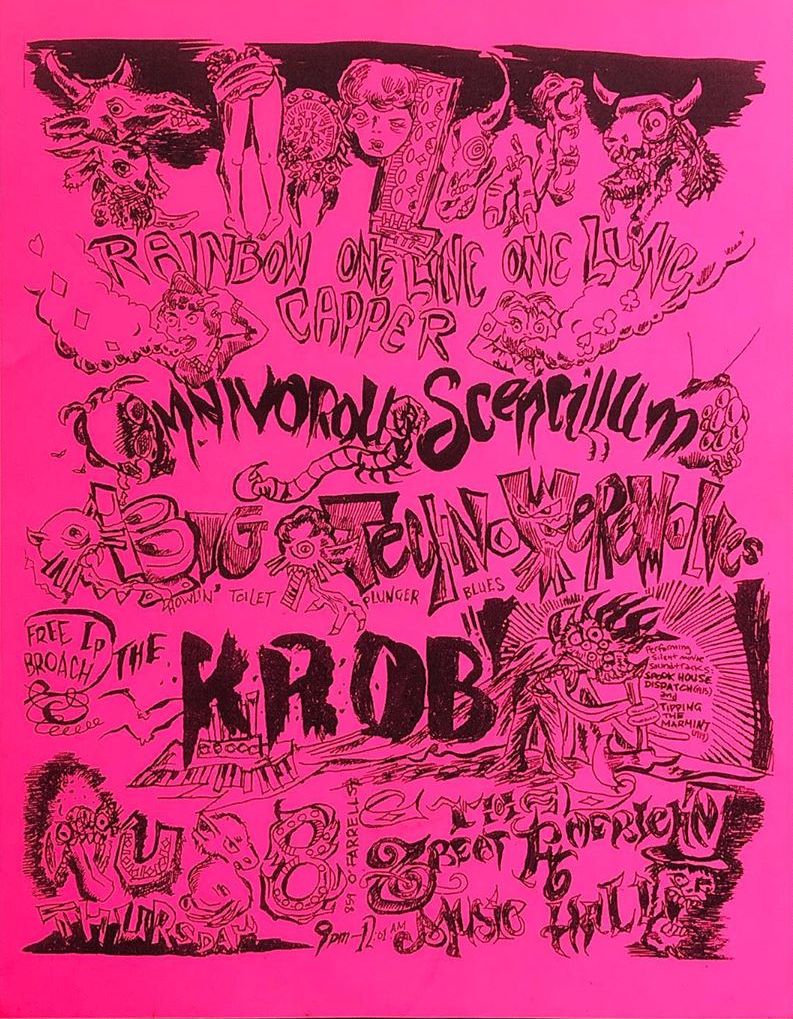 RAINBOW ONE LINE ONE LUNG
CAPPER
OMNIVOROUS Scencillum
BIG TechNo WereWolves
HOWLIN' TOILET PLUNGER BLUES
FREE LP
BROACH
THE KROB
Performing
silent movie
soundtracks:
SPOOK HOUSE
DISPATCH
and
TIPPING
THE
MARMINT
859 O'FARRELL ST
THE
Great American
Music Hall
THURSDAY
9pm-12:01 AM